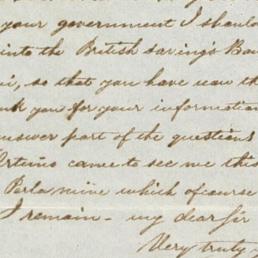 your government I should
into the British Savings Ba
so that you have now th
you for your information
answer part of the questions
came to see me this
Perla mine which of course
I remain - my dear Sir
Very truly